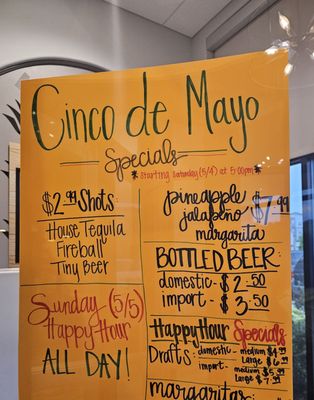 Cinco de Mayo
Specials
* Starting Saturday (5/4) at 5:00pm *
$2.99 Shots:
House Tequila
Fireball
Tiny Beer
Sunday (5/5)
Happy Hour
ALL DAY!
pineapple
jalapeño $7.99
margarita
BOTTLED BEER
domestic - $2.50
import - $3.50
Happy Hour Specials
Drafts: domestic - medium $4.99
Large $6.99
import - medium $5.99
Large $7.99
margaritas